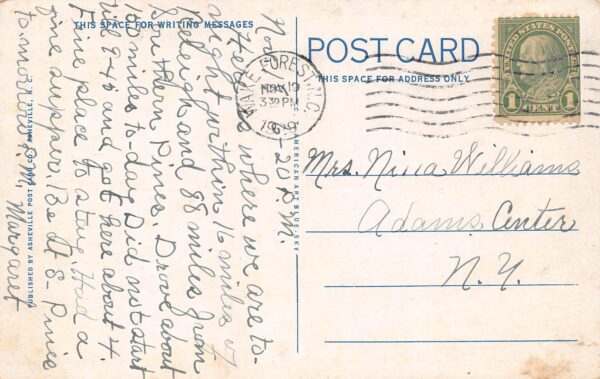 THIS SPACE FOR WRITING MESSAGES
Nov.
20 P.M.
Here is where we are to-
night within 16 miles of
Raleigh and 88 miles from
Southern Pines. Drove about
160 miles to-day. Did not start
till 9-45 and got here about 4.
Fine place to stay. Had a
fine supper. Be at S- Pines
to-morrow A.M. Margaret
PUBLISHED BY ASHEVILLE POST CARD CO., ASHEVILLE, N. C.
C. T. AMERICAN ART BLUE-SKY
POST CARD
THIS SPACE FOR ADDRESS ONLY
WAKE FOREST, N.C.
NOV 19
3 30 PM
UNITED STATES POSTAGE
1 CENT 1
Mrs. Nina Williams
Adams Center
N. Y.